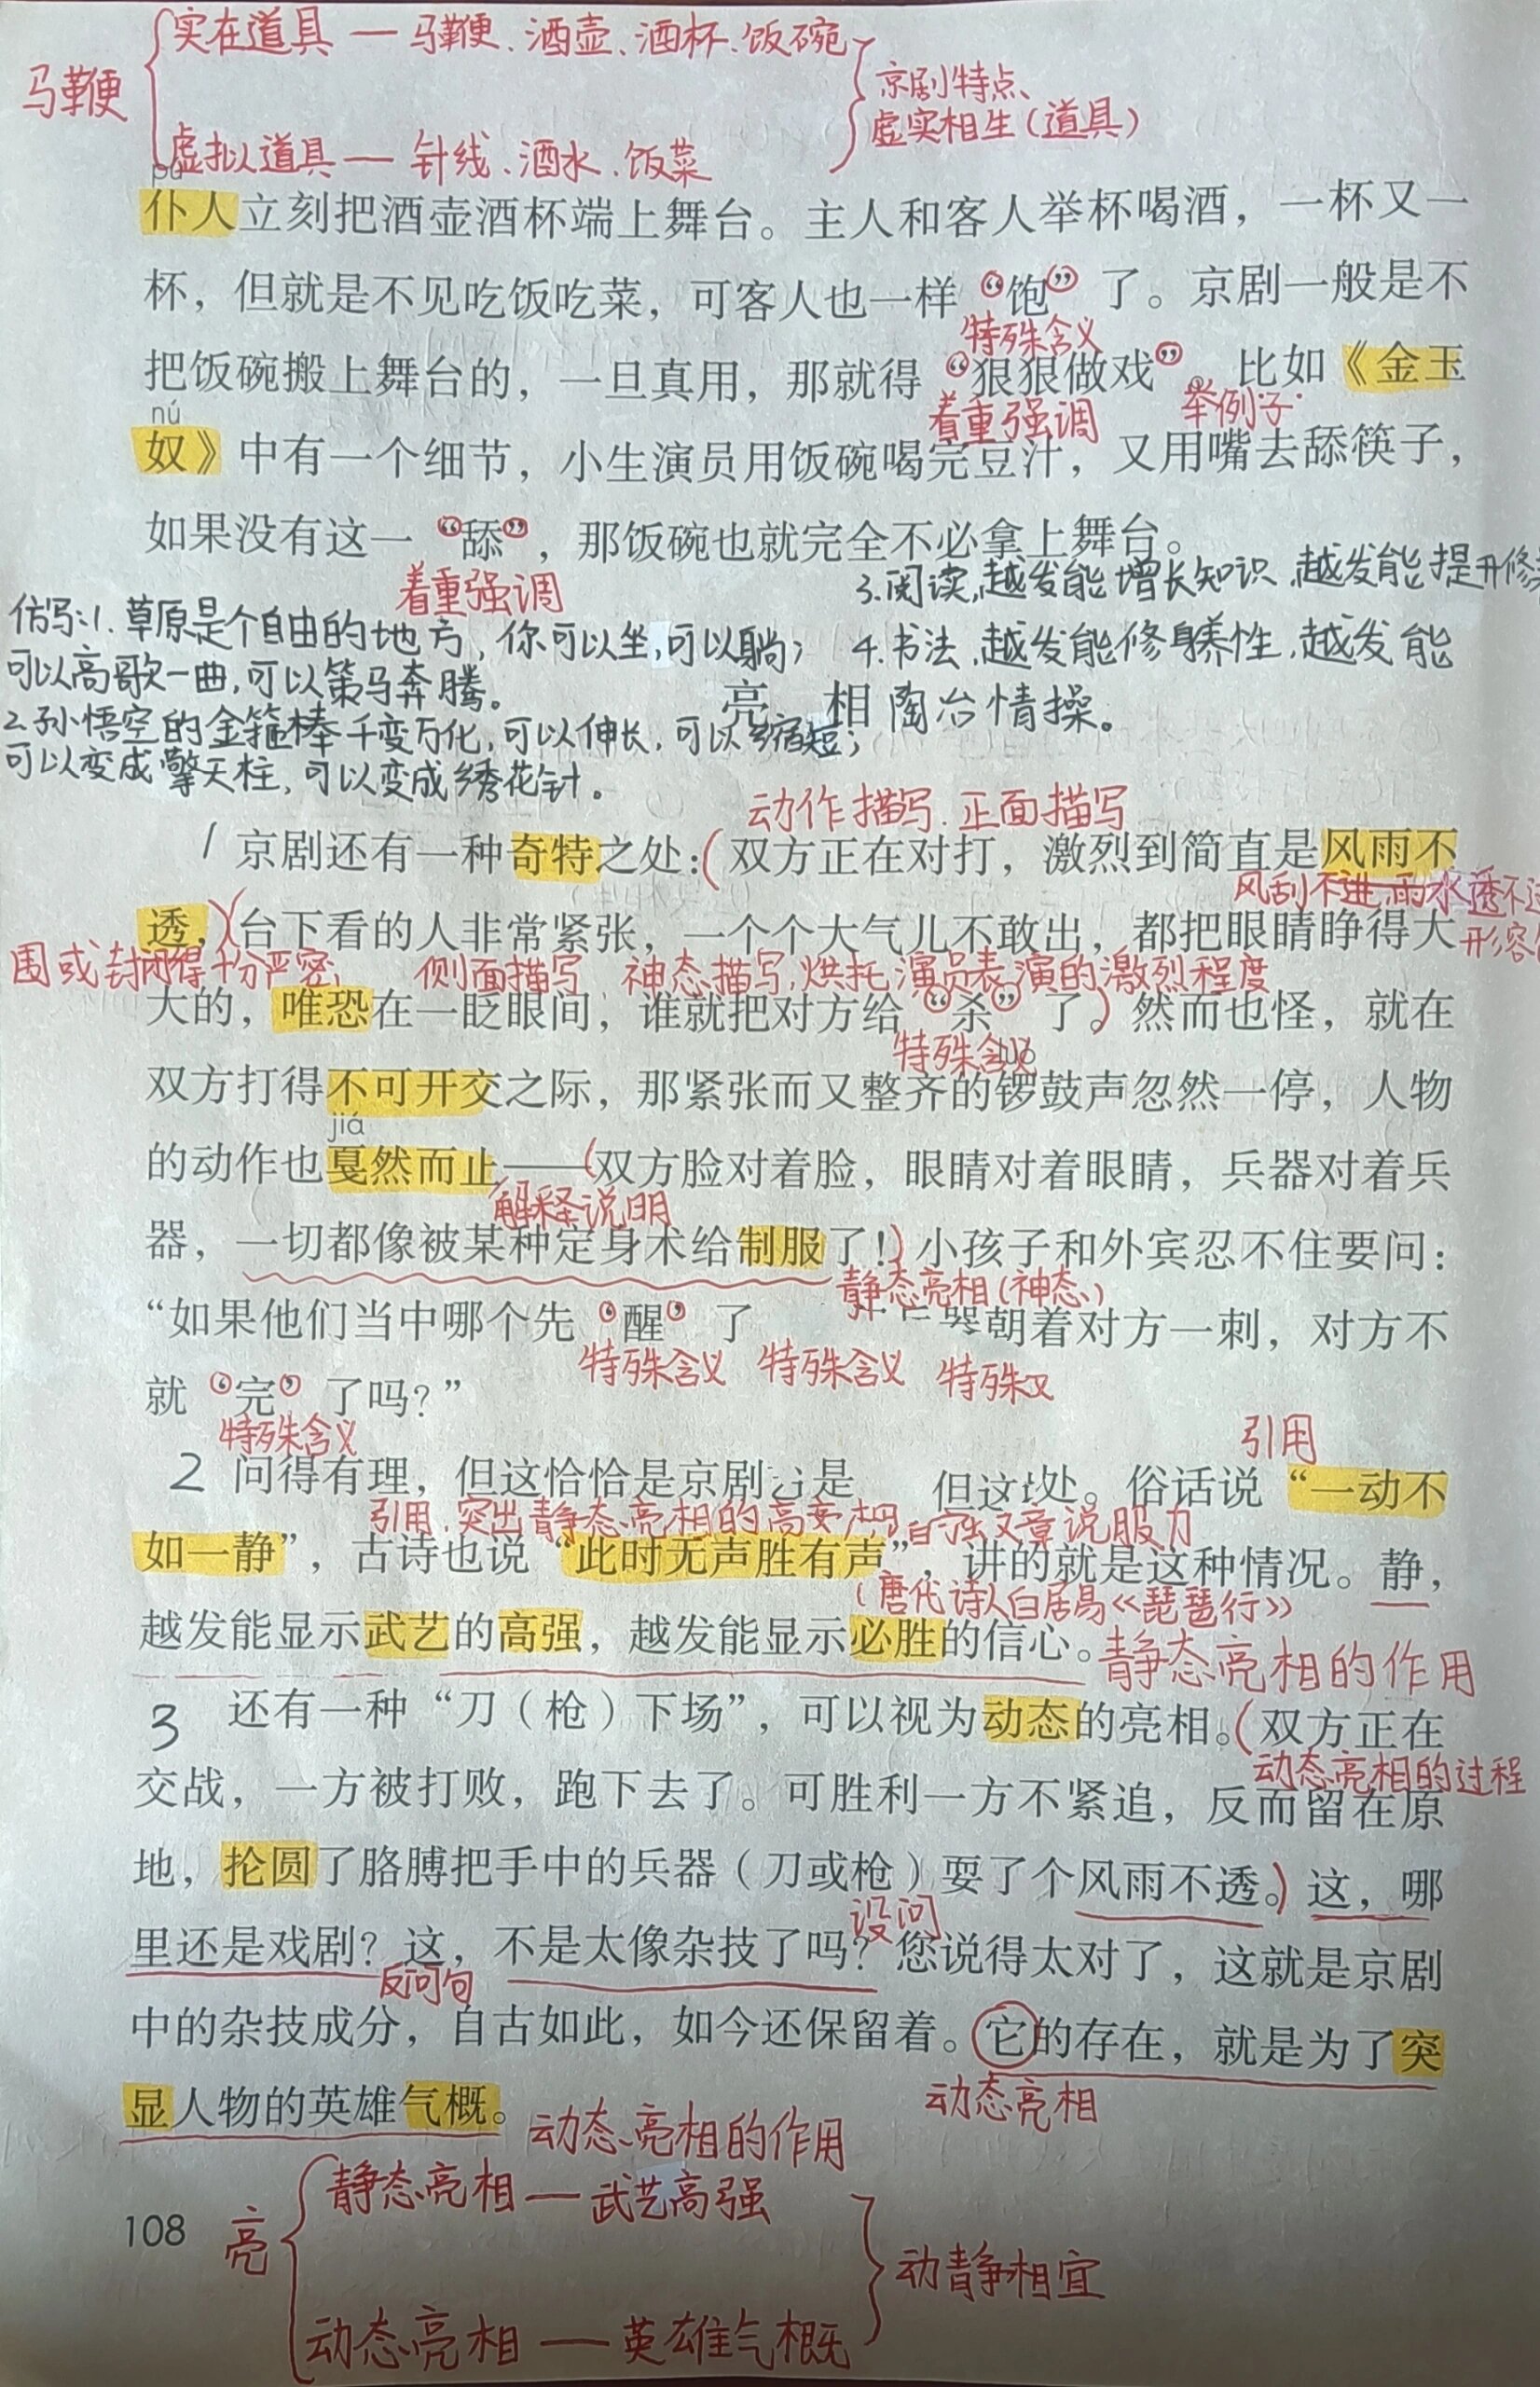 实在道具 — 马鞭、酒壶、酒杯、饭碗
马鞭
京剧特点、
虚实相生（道具）
虚拟道具 — 针线、酒水、饭菜
pú
仆人立刻把酒壶酒杯端上舞台。主人和客人举杯喝酒，一杯又一
杯，但就是不见吃饭吃菜，可客人也一样“饱”了。京剧一般是不
特殊含义
把饭碗搬上舞台的，一旦真用，那就得“狠狠做戏”。比如《金玉
nú
着重强调
举例子
奴》中有一个细节，小生演员用饭碗喝完豆汁，又用嘴去舔筷子，
如果没有这一“舔”，那饭碗也就完全不必拿上舞台。
着重强调
3.阅读,越发能增长知识,越发能提升修
仿写:1.草原是个自由的地方,你可以坐,可以躺;
可以高歌一曲,可以策马奔腾。
4.书法,越发能修身养性,越发能
陶冶情操。
亮 相
2.孙悟空的金箍棒千变万化,可以伸长,可以缩短;
可以变成擎天柱,可以变成绣花针。
动作描写、正面描写
1 京剧还有一种奇特之处：（双方正在对打，激烈到简直是风雨不
风刮不进,雨水透不
透，）（台下看的人非常紧张，一个个大气儿不敢出，都把眼睛睁得大
形容
围或封闭得十分严密,
侧面描写 神态描写,烘托演员表演的激烈程度
大的，唯恐在一眨眼间，谁就把对方给“杀”了。）然而也怪，就在
特殊含义
luó
双方打得不可开交之际，那紧张而又整齐的锣鼓声忽然一停，人物
jiá
的动作也戛然而止——（双方脸对着脸，眼睛对着眼睛，兵器对着兵
解释说明
器，一切都像被某种定身术给制服了！）小孩子和外宾忍不住要问：
静态亮相(神态)
“如果他们当中哪个先‘醒’了 朝着对方一刺，对方不
特殊含义 特殊含义 特殊
就‘完’了吗？”
特殊含义
引用
2 问得有理，但这恰恰是京剧 是 但这 处。俗话说“一动不
引用,突出静态亮相的高 说服力
如一静”，古诗也说“此时无声胜有声”，讲的就是这种情况。静，
(唐代诗人白居易《琵琶行》
越发能显示武艺的高强，越发能显示必胜的信心。
静态亮相的作用
3 还有一种“刀（枪）下场”，可以视为动态的亮相。（双方正在
动态亮相的过程
交战，一方被打败，跑下去了。可胜利一方不紧追，反而留在原
地，抡圆了胳膊把手中的兵器（刀或枪）耍了个风雨不透。）这，哪
设问
里还是戏剧？这，不是太像杂技了吗？您说得太对了，这就是京剧
反问句
中的杂技成分，自古如此，如今还保留着。它的存在，就是为了突
动态亮相
显人物的英雄气概。
动态亮相的作用
静态亮相 — 武艺高强
108
亮
动静相宜
动态亮相 — 英雄气概